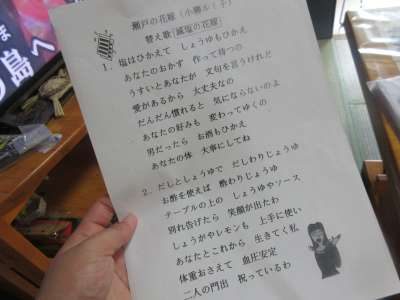 瀬戸の花嫁(小柳ルミ子)
替え歌「減塩の花嫁」
1.塩はひかえて しょうゆもひかえ
あなたのおかず 作って待つの
うすいとあなたが 文句を言うけれど
愛があるから 大丈夫なの
だんだん慣れると 気にならないのよ
あなたの好みも 変わってゆくの
男だったら お酒もひかえ
あなたの体 大事にしてね
2.だしとしょうゆで だしわりじょうゆ
お酢を使えば 酢わりじょうゆ
テーブルの上の しょうゆやソース
別れ告げたら 笑顔が出たわ
しょうがやレモンも 上手に使い
あなたとこれから 生きてく私
体重おさえて 血圧安定
二人の門出 祝っているわ
島へ